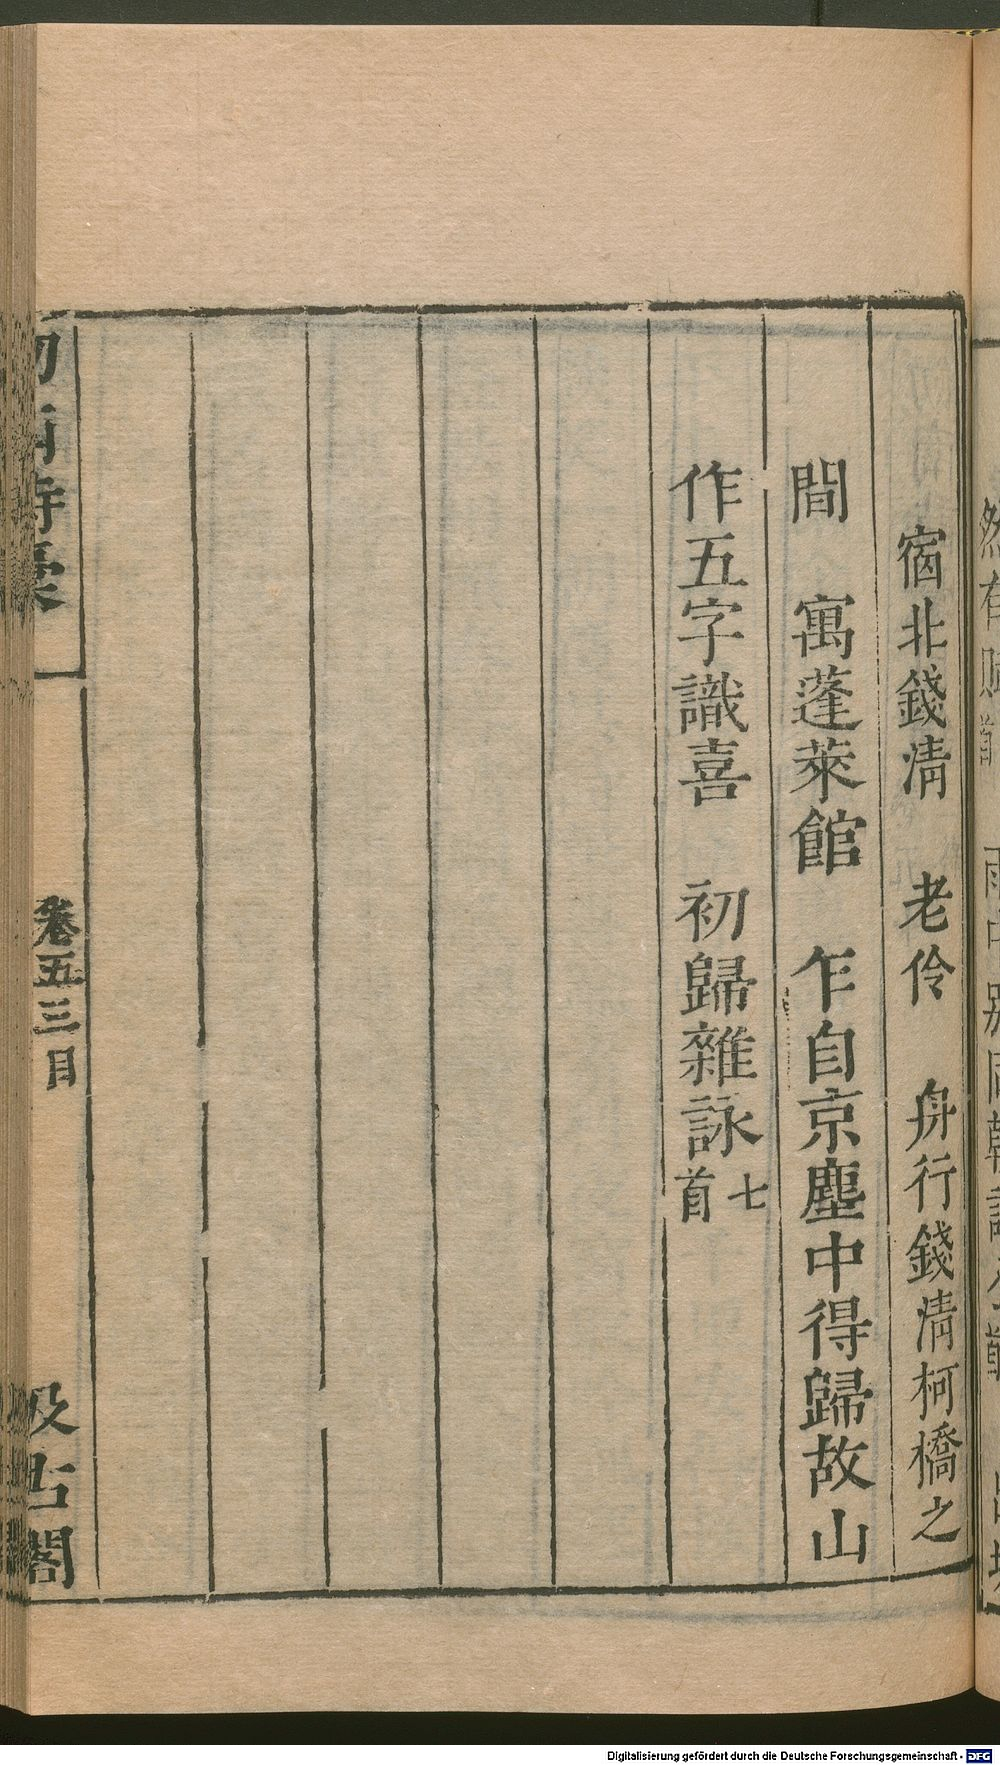 宿北錢清　老伶　舟行錢清柯橋之
間　寓蓬萊館　乍自京塵中得歸故山
作五字識喜　初歸雜詠七首
卷五三目
汲古閣
Digitalisierung gefördert durch die Deutsche Forschungsgemeinschaft - DFG